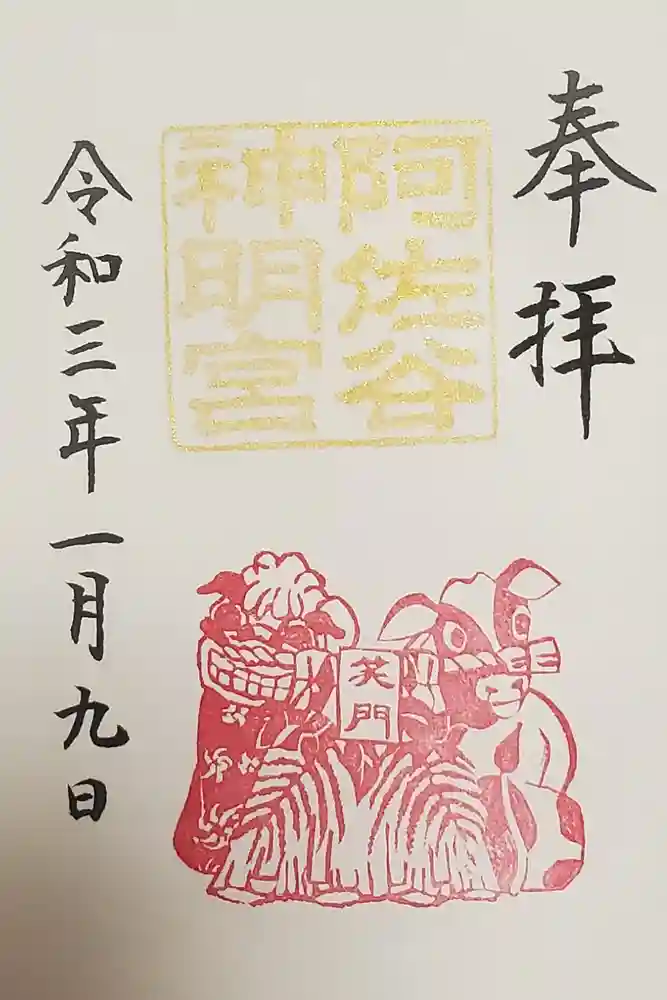 奉拝
阿佐谷
神明宮
笑門
令和三年一月九日